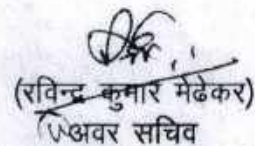 (रविन्द्र कुमार मेढेकर)
अवर सचिव